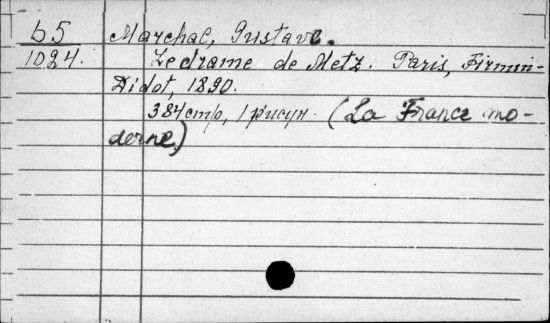 b5 Marchal, Gustave.
1024. Le drame de Metz. Paris, Firmin-
Didot, 1890.
384 стр., 1 рисун. (La France mo-
derne.)